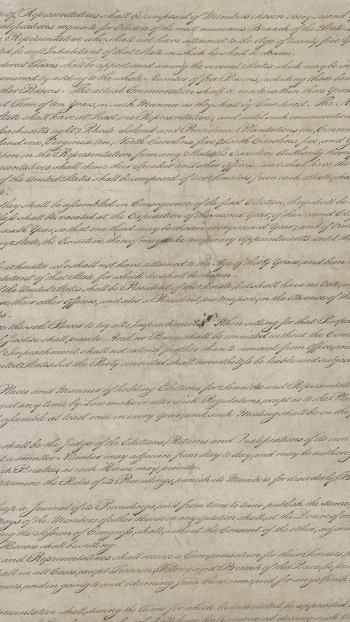 of Representatives shall be composed of Members chosen every second
Qualifications requisite for Electors of the most numerous Branch of the State
a Representative who shall not have attained to the Age of twenty five
ted, be an Inhabitant of that State in which he shall be chosen.
direct Taxes shall be apportioned among the several States which may be in
mined by adding to the whole Number of free Persons, including those
other Persons. The actual Enumeration shall be made within three Years
Term of ten Years, in such Manner as they shall by Law direct. The
State shall have at Least one Representative; and until such enumeration
achusetts eight, Rhode Island and Providence Plantations one, Connec
land six, Virginia ten, North Carolina five, South Carolina five, and
ppen in the Representation from any State, the Executive
sentatives shall chuse their Speaker and other Officers; and shall have the
of the United States shall be composed of two Senators from each State,
they shall be assembled in Consequence of the first Election, they shall be
shall be vacated at the Expiration of the second Year, of the second
sixth Year, so that one third may be chosen every second Year; and if
any State, the Executive thereof may make temporary Appointments until the
Senator who shall not have attained to the Age of thirty Years, and been
Inhabitant of that State for which he shall be chosen.
the United States shall be President of the Senate, but shall have no Vote,
use their other Officers, and also a President pro tempore, in the Absence of the
s.
e the sole Power to try all Impeachments. When sitting for that Purpose
Justice shall preside: And no Person shall be convicted without the Concurr
Impeachment shall not extend further than to removal from Office,
ted States: but the Party convicted shall nevertheless be liable and subject
Places and Manner of holding Elections for Senators and Representat
ay at any time by Law make or alter such Regulations, except as to the Places
assemble at least once in every Year, and such Meeting shall be on the
shall be the Judge of the Elections, Returns and Qualifications of its own
a smaller Number may adjourn from day to day, and may be authori
ch Penalties as each House may provide.
etermine the Rules of its Proceedings, punish its Members for disorderly
keep a Journal of its Proceedings, and from time to time publish the same
Nays of the Members of either House on any question shall, at the Desire of
ng the Session of Congress, shall, without the Consent of the other,
Houses shall be sitting.
and Representatives shall receive a Compensation for their Services,
all in all Cases, except Treason, Felony and Breach of the Peace, be
uses, and in going to and returning from the same; and for any Speech
esentative shall, during the Time for which he was elected, be appointed